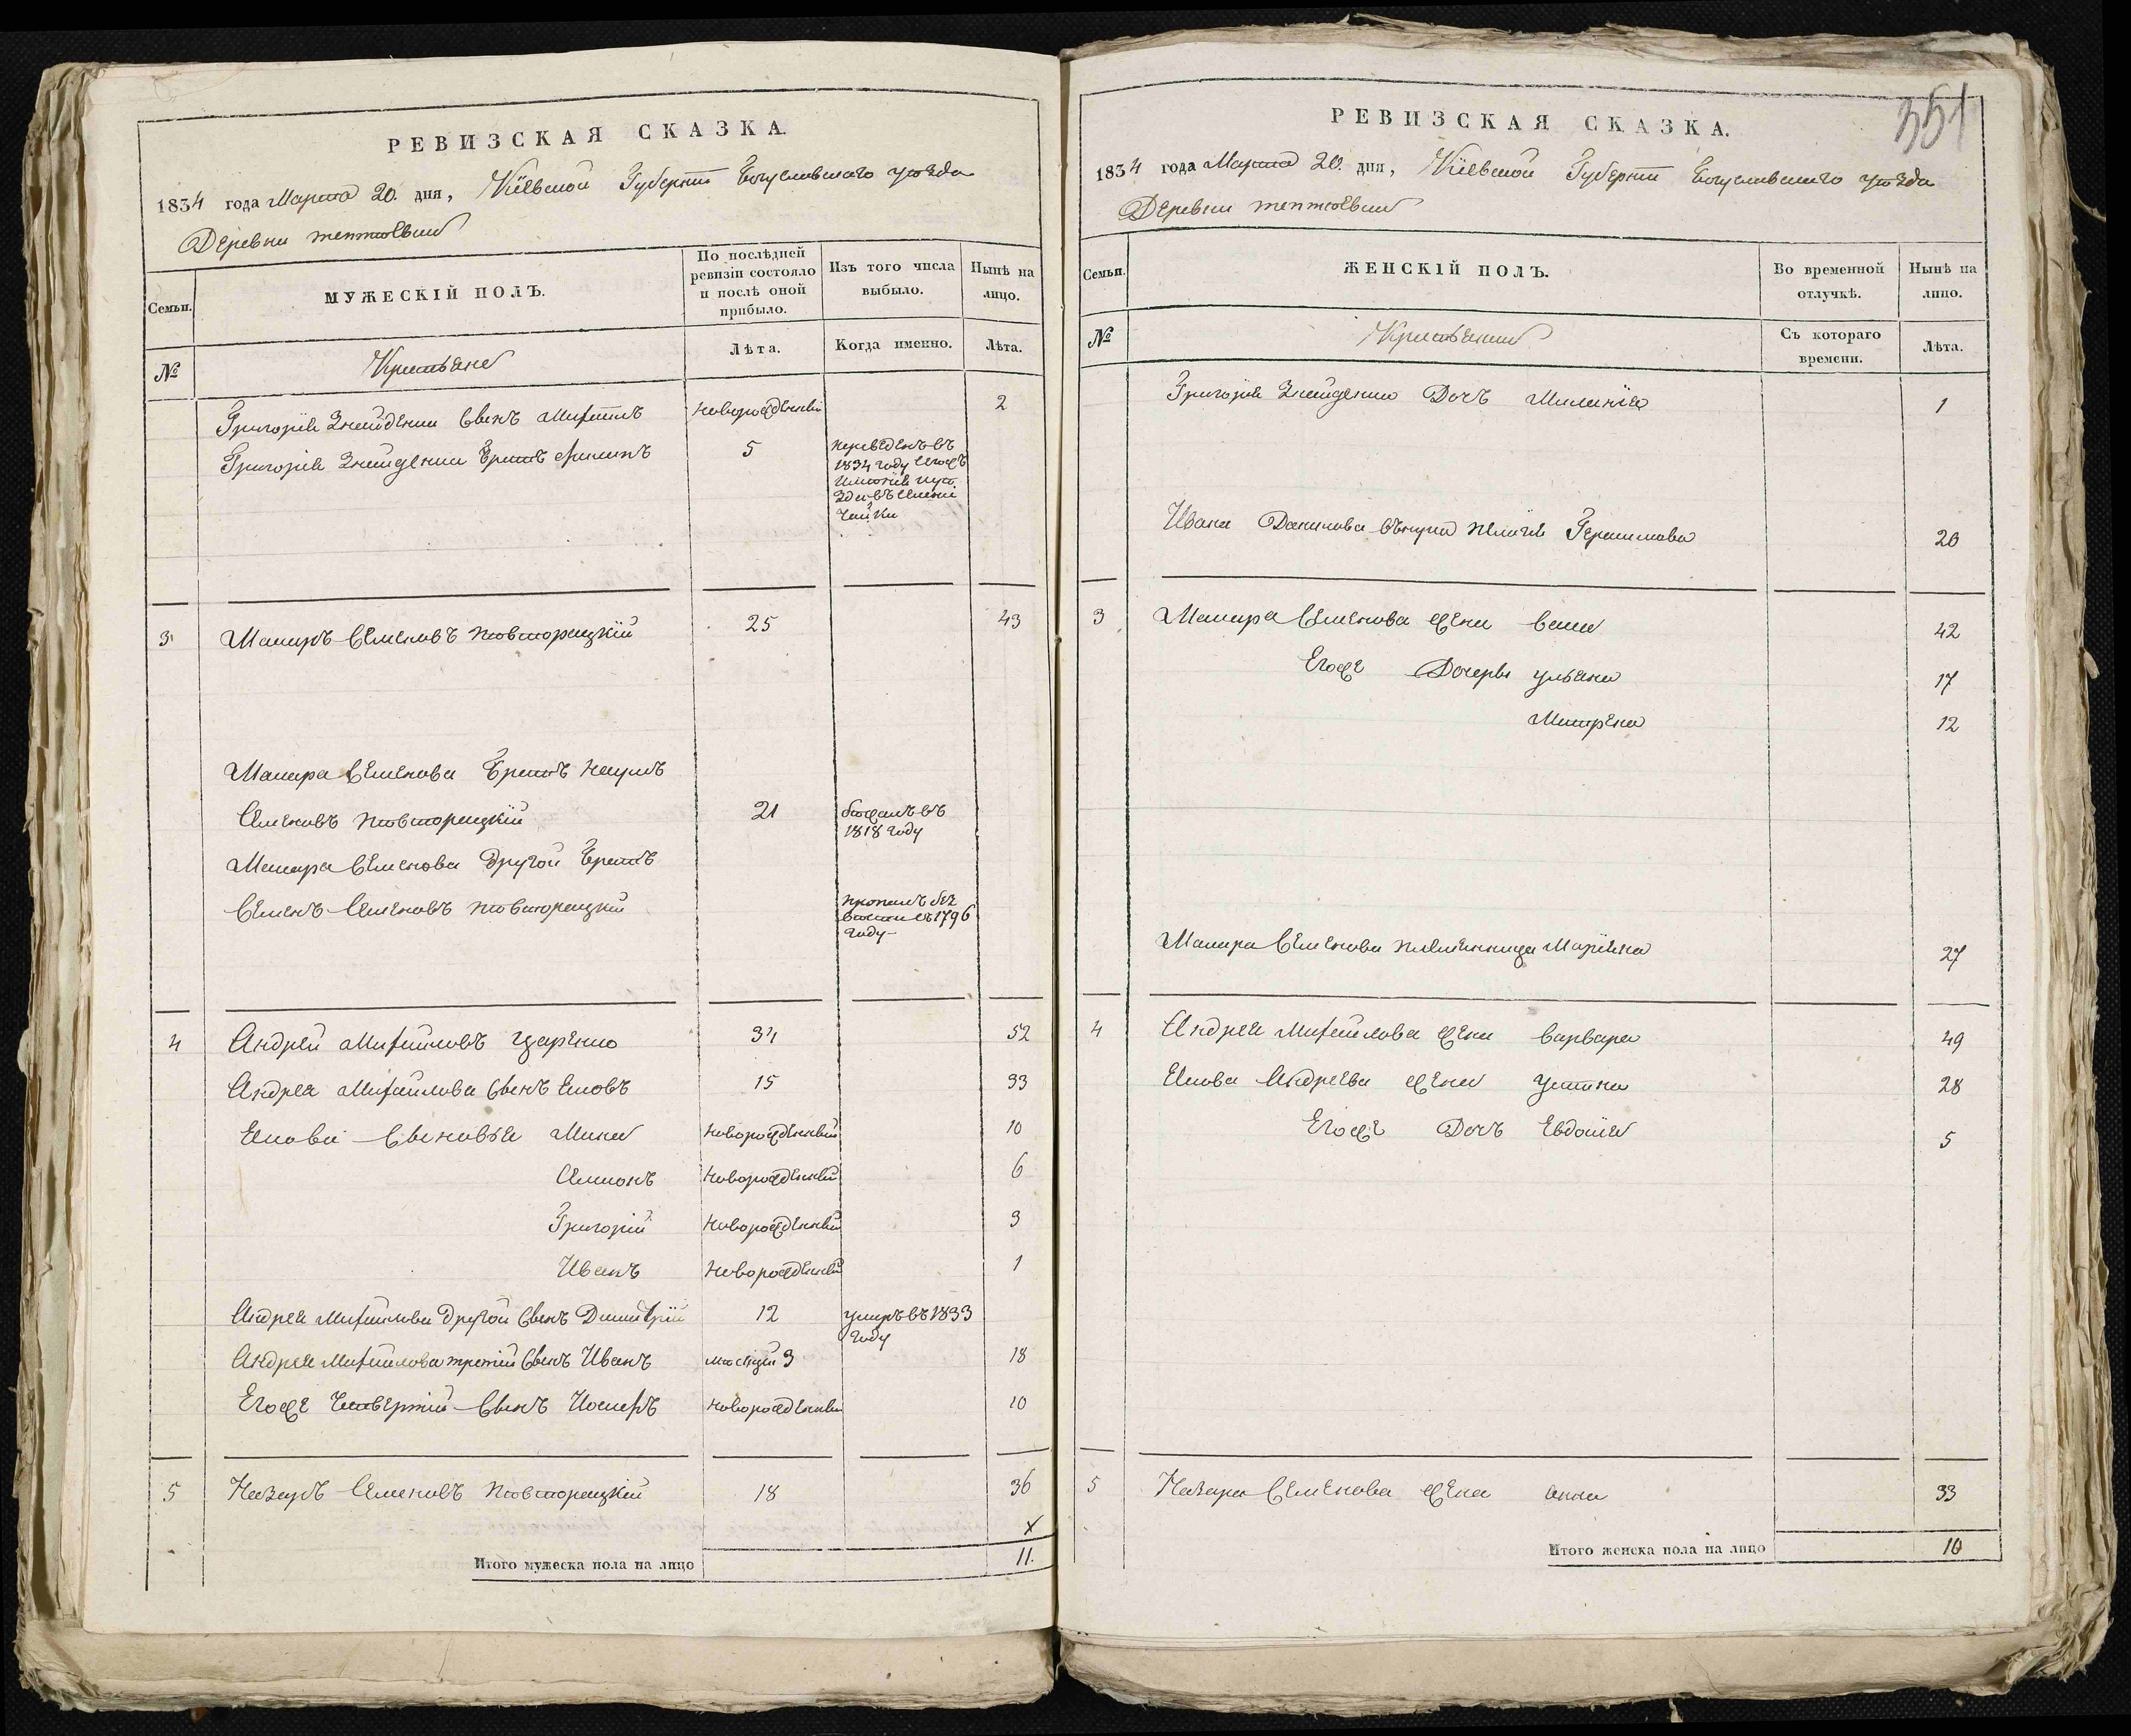 РЕВИЗСКАЯ СКАЗКА.
1834 года Марта 20. дня, Кіевской Губерніи Богуславскаго уезда
Деревни
Семьи.
МУЖЕСКІЙ ПОЛЪ.
По послѣдней ревизіи состояло и послѣ оной прибыло.
Изъ того числа выбыло.
Нынѣ на лицо.
№
Крестьяне
Лѣта.
Когда именно.
Лѣта.
Григорія Знайденка Сынъ новорожденный 2
Григорія Знайденка Братъ Филипъ 5 переведенъ въ
1834 году
3 Макаръ Семеновъ 25 43
Макара Семенова Братъ Наумъ
Семеновъ 21 бежалъ въ
1818 году
Макара Семенова Другой Братъ
Семенъ Семеновъ пропалъ без
вести въ 1796
году
4 Андрей Михайловъ Царенко 34 52
Андрея Михайлова Сынъ Яковъ 15 33
Якова Сыновья Мина новорожденный 10
новорожденный 6
Григорій новорожденный 3
Иванъ новорожденный 1
Андрея Михайлова Другой Сынъ Димитрій 12 умеръ въ 1833
году
Андрея Михайлова третій Сынъ Иванъ месяцы 3 18
Егоже Четвертій Сынъ Иосифъ новорожденный 10
5 Назаръ Семеновъ 18 36
х
Итого мужеска пола на лицо 11.
351
РЕВИЗСКАЯ СКАЗКА.
1834 года Марта 20. дня, Кіевской Губерніи Богуславскаго уезда
Деревни
Семьи.
ЖЕНСКІЙ ПОЛЪ.
Во временной отлучкѣ.
Нынѣ на лицо.
№
Съ котораго времени.
Лѣта.
Григорія Знайденка Дочъ Миланія 1
Ивана Данилова Герасимова 20
3 Макара Семенова жена 42
Егоже Дочеры Ульяна 17
Матрена 12
Макара Семенова племенница Маріяна 27
4 Андрея Михайлова жена Варвара 49
Якова Андреева жена Устина 28
Егоже Дочъ Евдокія 5
5 Назара Семенова жена Анна 33
Итого женска пола на лицо 10